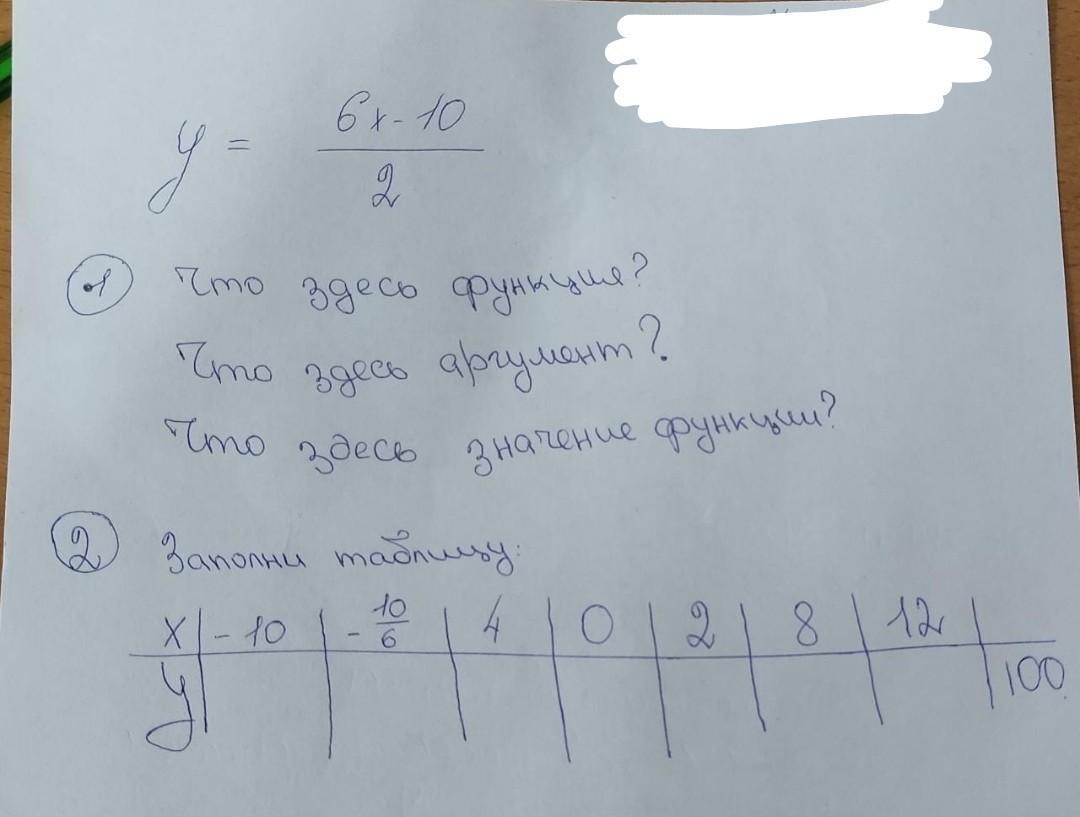 y = (6x - 10) / 2
1 Что здесь функция?
Что здесь аргумент?
Что здесь значение функции?
2 Заполни таблицу:
x | -10 | -10/6 | 4 | 0 | 2 | 8 | 12 |
y | | | | | | | | 100